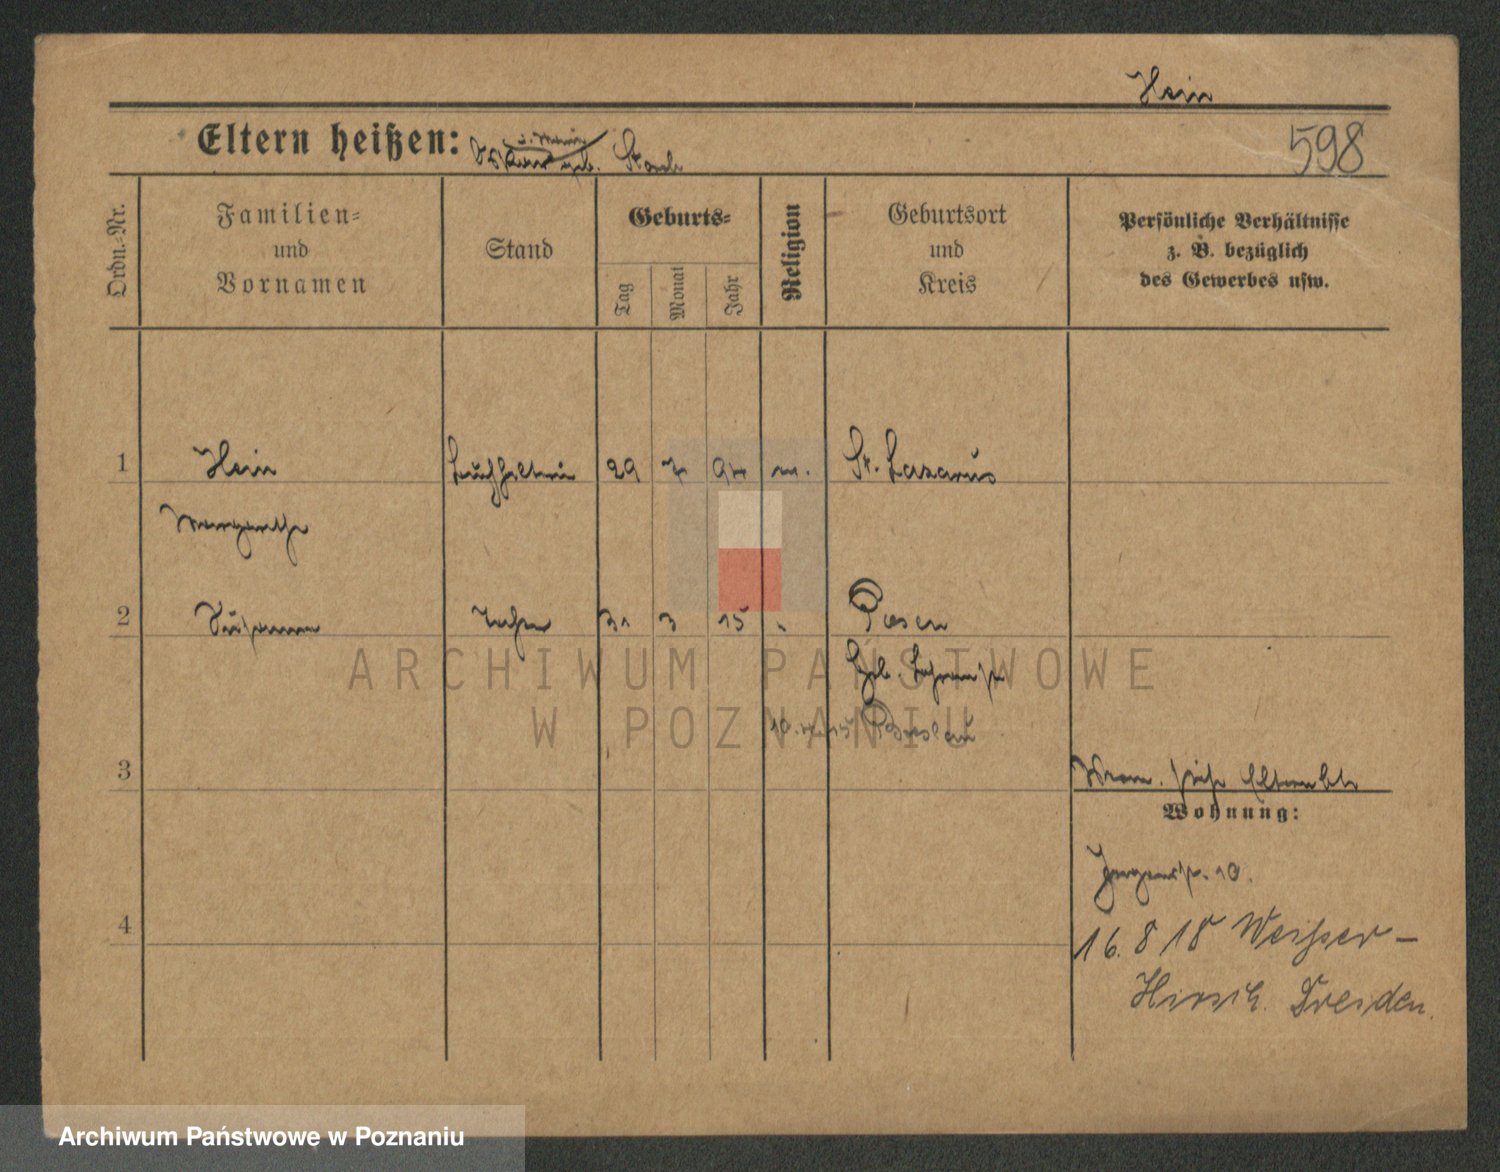 Hein
Eltern heißen: geb. Stark
598
Ordn.-Nr.
Familien-
und
Vornamen
Stand
Geburts-
Tag
Monat
Jahr
Religion
Geburtsort
und
Kreis
Persönliche Verhältnisse
z. B. bezüglich
des Gewerbes usw.
1 Hein Buchhalterin 29 7 94 St. Lazarus
Margarethe
2 Susanna Tochter 31 3 15 Posen
ARCHIWUM PAŃSTWOWE
W POZNANIU
Breslau
3
Wohnung:
10.
4
16. 8 18 Weisser-
Hirsch. Dresden.
Archiwum Państwowe w Poznaniu